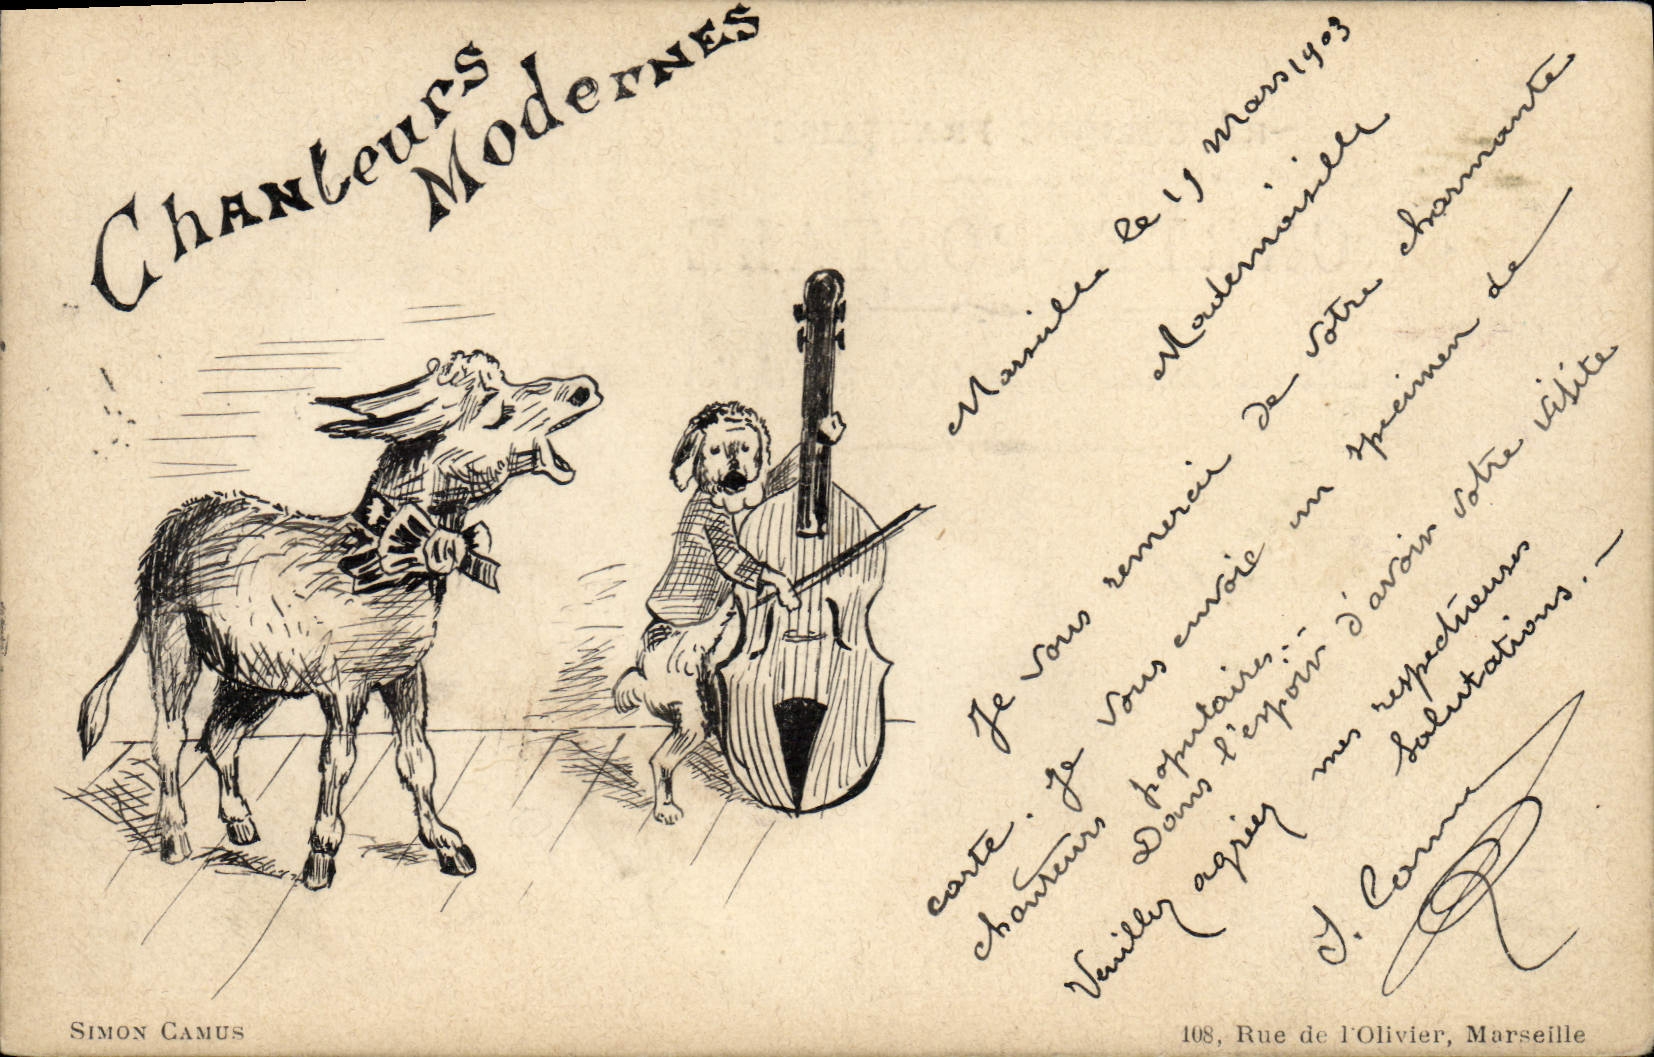 Chanteurs
Modernes
Marseille le 15 Mars 1903
Mademoiselle
Je vous remercie de votre charmante
carte. Je vous envoie un specimen de
chanteurs populaires.-
Dans l'espoir d'avoir votre visite
Veuillez agréer mes respectueuses
salutations.-
S. Camus
SIMON CAMUS
108, Rue de l'Olivier, Marseille